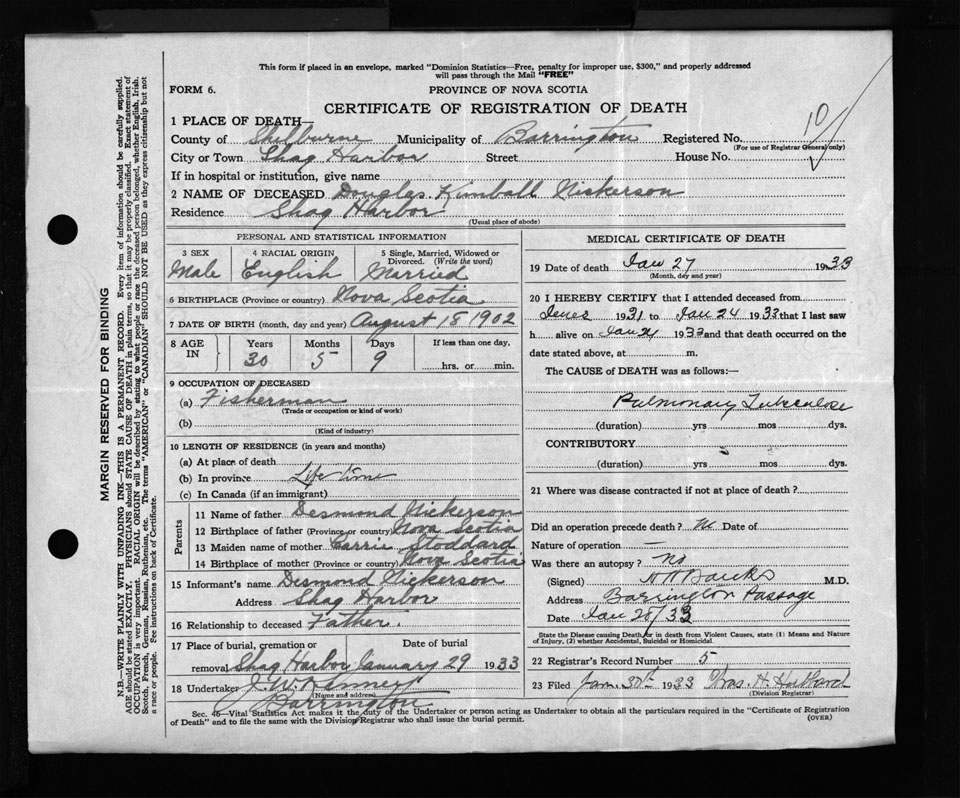 This form if placed in an envelope, marked "Dominion Statistics—Free, penalty for improper use, $300," and properly addressed
will pass through the Mail "FREE"
FORM 6.
PROVINCE OF NOVA SCOTIA
CERTIFICATE OF REGISTRATION OF DEATH
10
1 PLACE OF DEATH—
County of Shelburne Municipality of Barrington Registered No.
(For use of Registrar General only)
City or Town Shag Harbor Street House No.
If in hospital or institution, give name
2 NAME OF DECEASED Douglas Kimball Nickerson
Residence Shag Harbor
(Usual place of abode)
PERSONAL AND STATISTICAL INFORMATION
3 SEX 4 RACIAL ORIGIN 5 Single, Married, Widowed or
Divorced. (Write the word)
Male English Married
6 BIRTHPLACE (Province or country) Nova Scotia
7 DATE OF BIRTH (month, day and year) August 18 1902
8 AGE IN Years Months Days If less than one day.
30 5 9 hrs. or min.
9 OCCUPATION OF DECEASED
(a) Fisherman
(Trade or occupation or kind of work)
(b)
(Kind of industry)
10 LENGTH OF RESIDENCE (in years and months)
(a) At place of death
(b) In province Life time
(c) In Canada (if an immigrant)
Parents
11 Name of father Desmond Nickerson
12 Birthplace of father (Province or country) Nova Scotia
13 Maiden name of mother Carrie Stoddard
14 Birthplace of mother (Province or country) Nova Scotia
15 Informant's name Desmond Nickerson
Address Shag Harbor
16 Relationship to deceased Father.
17 Place of burial, cremation or Date of burial
removal Shag Harbor January 29 1933
18 Undertaker J. W.
(Name and address)
Barrington
MEDICAL CERTIFICATE OF DEATH
19 Date of death Jan 27 1933
(Month, day and year)
20 I HEREBY CERTIFY that I attended deceased from
1931 to Jan 24 1933 that I last saw
h alive on Jan 21 1933 and that death occurred on the
date stated above, at m.
The CAUSE of DEATH was as follows:—
Pulmonary Tuberculosis
(duration) yrs mos dys.
CONTRIBUTORY
(duration) yrs mos dys.
21 Where was disease contracted if not at place of death?
Did an operation precede death? No Date of
Nature of operation —
Was there an autopsy? No
(Signed) Banks M.D.
Address Barrington Passage
Date Jan 28/33
State the Disease causing Death, or in death from Violent Causes, state (1) Means and Nature
of Injury, (2) whether Accidental, Suicidal or Homicidal.
22 Registrar's Record Number 5
23 Filed Jan. 30th 1933 Chas. H. Hubbard
(Division Registrar)
Sec. 46—Vital Statistics Act makes it the duty of the Undertaker or person acting as Undertaker to obtain all the particulars required in the "Certificate of Registration
of Death" and to file the same with the Division Registrar who shall issue the burial permit.
(OVER)
MARGIN RESERVED FOR BINDING
N.B.—WRITE PLAINLY WITH UNFADING INK—THIS IS A PERMANENT RECORD. Every item of information should be carefully supplied.
AGE should be stated EXACTLY. PHYSICIANS should STATE CAUSE OF DEATH in plain terms, so that it may be properly classified. Exact statement of
OCCUPATION is very important. RACIAL ORIGIN will be described by stating to what people or race the deceased person belonged, whether English, Irish,
Scotch, French, German, Russian, Ruthenian, etc. The terms "AMERICAN" or "CANADIAN" SHOULD NOT BE USED as they express citizenship but not
a race or people. See instructions on back of Certificate.